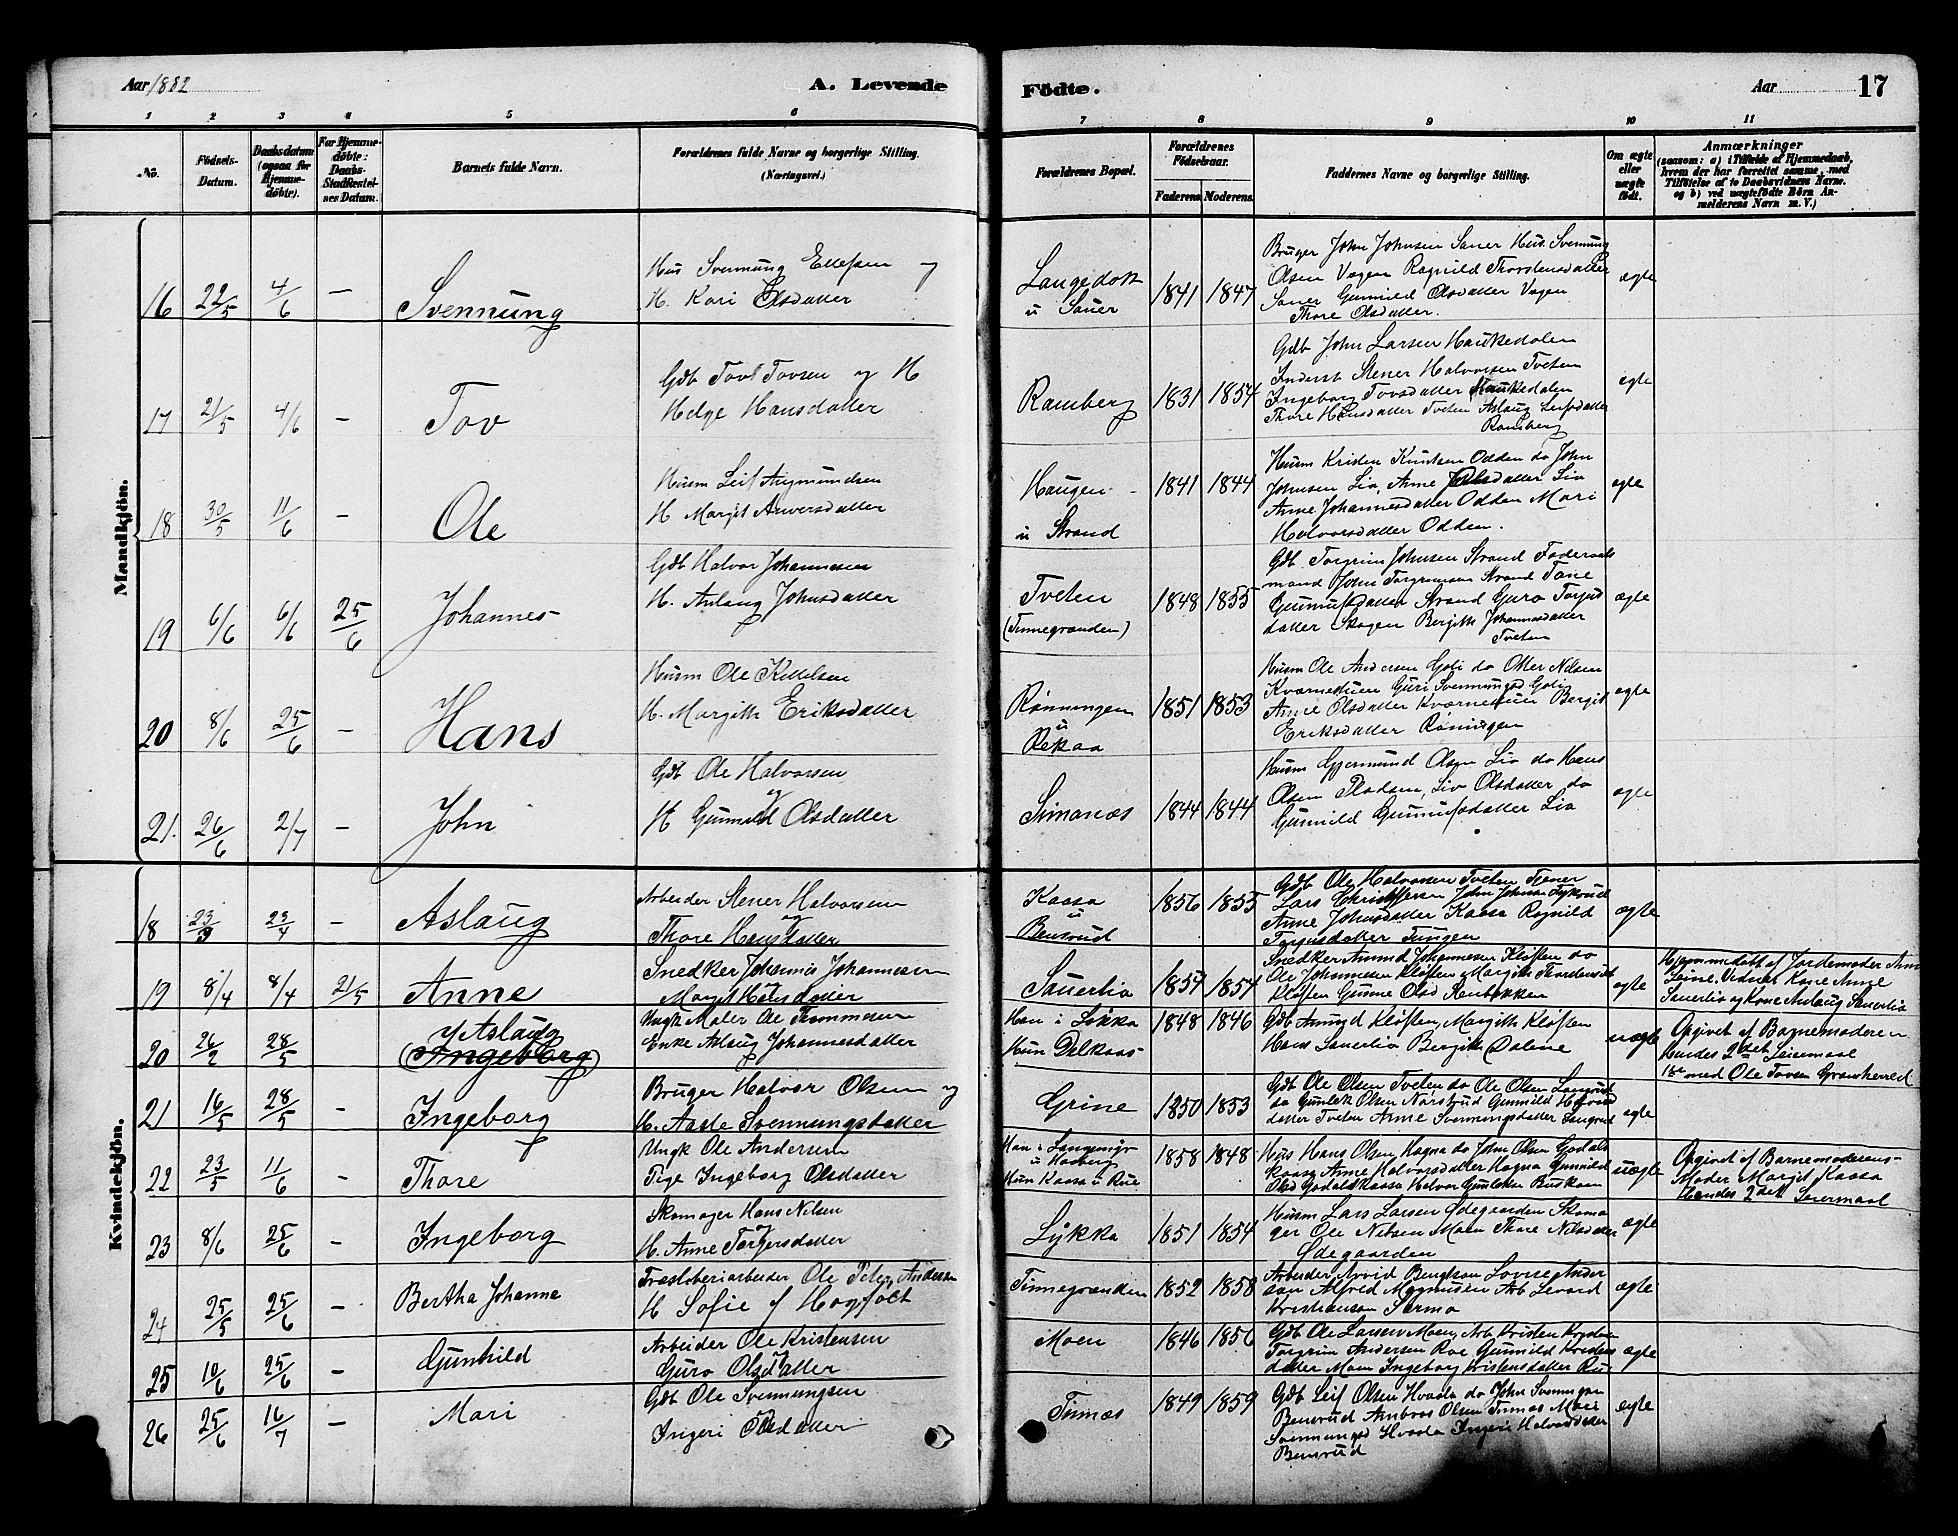 Aar 1882
A. Levende
Fødte.
Aar
17
1 2 3 4 5 6 7 8 9 10 11
No.
Fødsels-
Datum.
Daabsdatum
(ogsaa for
Hjemme-
døbte).
For Hjemme-
døbte:
Daabs-
Stadfæstel-
ses Datum.
Barnets fulde Navn.
Forældrenes fulde Navne og borgerlige Stilling.
(Næringsvei.)
Forældrenes Bopæl.
Forældrenes
Fødselsaar.
Faderens. Moderens.
Faddernes Navne og borgerlige Stilling.
Om ægte
eller
uægte
født.
Anmærkninger
(saasom: a) i Tilfælde af Hjemmedaab,
hvem der har forrettet samme, med
Tilføielse af to Daabsvidners Navne.
og b) ved uægtefødte Børn An-
melderens Navn m. V.)
Mandkjøn.
16 22/5 4/6 — Svennung
Hus Svennung Ellefsen og
H. Kari Olsdatter
Langedok
u Sauer
1841 1847
Bruger John Johnsen Sauer Hus. Svennung
Olsen Vaagen Ragnild Thorstensdatter
Sauer Gunnild Olsdatter Vaagen
Thore Olsdatter.
ægte
17 21/5 4/6 - Tov
Gdb Tovl Tovsen og H
Helge Hansdatter
Ramberg
1831 1854
Gdb John Larsen Haukedalen
Inderst Stener Halvorsen Tveten
Ingeborg Tovsdatter Haukedalen
Thore Hansdatter Tveten Aslaug Leifsdatter
Ramberg
ægte
18 30/5 11/6 - Ole
Husm Leif Angmundsen
H Margit Anversdatter
Haugen -
u Strand
1841 1844
Husm Kristen Knutsen Odden do John
Johnsen Lia, Anne Olsdatter Lia
Anne Johannesdatter Odden Mari
Halvorsdatter Odden.
ægte
19 6/6 6/6 25/6 Johannes
Gdb Halvor Johannesen
H. Aslaug Johnsdatter
Tveten
(Tinnegranden)
1848 1855
Gdb Torgrim Johnsen Strand Føderaads
mand John Torgrimsen Strand Tone
Gunnulfsdatter Strand Guro Torjus
datter Skogen Bergith Johannesdatter
Tveten
ægte
20 8/6 25/6 - Hans
Husm Ole Kittelsen
H. Margith Eriksdatter
Rønningen
u
Rekaa
1851 1853
Husm Ole Andersen Goli do Otter Nilsen
Kvernestuen Guri Svennungsd Goli
Anne Olsdatter Kvernestuen Bergit
Eriksdatter Røningen
ægte
21. 26/6 2/7 - John
Gdb Ole Halvorsen
og
H Gunnild Olsdatter
Simonæs
1844 1844
Husm Gjermund Olsen Lia do Hans
Olsen Pladsen, Liv Olsdatter do
Gunnild Gunnulfsdatter Lia
ægte
Kvindekjøn.
18 23/3 23/4 - Aslaug
Arbeider Stener Halvorsen
og
Thore Hansdatter
Kaasa
u
Bensrud
1856 1855
Gdb Ole Halvorsen Tveten Tjener
Lars Christoffersen John Johnsen
Anne Johnsdatter Kaasa Ragnild
Torjusdatter Tungen
ægte
19 8/4 8/4 21/5 Anne
Snedker Johannes Johannesen
Margit Hansdatter
Sauerlia
1857 1854
Snedker Amund Johannessen Kløften do
Ole Johannessen Kløften Margith Thordensd
Kløften Gunne Olsd Renbakken
ægte
Hjemmedøbt af Jordemoder Ane
Leine. Vidner Kone Anne
Sauerlia og Kone Aslaug Sauerlia
20 26/2 28/5 Aslaug
(Ingeborg)
Ungk Maler Ole Thommesen
Enke Aslaug Johannesdatter
Han i Løkka
Hun Dalkaas
1848 1846
Gdb Amund Kløften, Margith Kløften
Hans Sauerlia Bergith Dalene
uægte
Opgivet af Barnemoderen
Hendes 2det Leiermaal
1ste med Ole Tovsen Gransherred
21 16/5 28/5 - Ingeborg
Bruger Halvor Olsen og
H. Aaste Svennungsdatter
Grine
1850 1853
Gdb Ole Olsen Tveten do Ole Olsen Langrud
do Gunlek Olsen Nørstrud Gunnild Halvors
datter Tveten Anne Svennungsdatter Langrud
ægte
22 23/5 11/6 - Thore
Ungk Ole Andersen
Pige Ingeborg Olsdatter
Han i Langemyr
u Hadberg
Hun Kaasa u Rue
1858 1848
Hus Hans Olsen Hagna do John Olsen Godals
kaasa Anne Halvorsdatter Hagna Gunnild
Olsd Godalskaasa Halvor Gunleksen Buskaas
uægte
Opgivet af Barnemoderens
Moder Margit Kaasa
Hendes 2det Leiermaal
23 8/6 25/6 - Ingeborg
Skomager Hans Nilsen
og
H. Anne Torgersdatter
Lykka
1851 1854
Husm Lars Larsen Ødegaarden Skoma
ger Ole Nilsen Moen Thore Nilsdatter
Ødegaarden
ægte
24 25/5 25/6 - Bertha Johanne
Træsliberiarbeider Ole Peter Andersen
H Sofie f Hagfolt
Tinnegranden
1852 1858
Arbeider Arvid Bengtson Lovise Ander
son Alfred Magnusen Arb Levard
Kristianson Sermo
ægte
25 10/6 25/6 - Gunhild
Arbeider Ole Kristensen
og
Guro Olsdatter
Moen
1846 1856
Gdb Ole Larsen Moen, Arb Kristen
Torgrim Andersen Rue Gunnild Kristens
datter Moen Ingeborg Kristensdatter Rue
ægte
26 25/6 16/7 - Mari
Gdb Ole Svennungsen
og
Ingeri Olsdatter
Tinnæs
1849 1859
Gdb Leif Olsen Hvaala do John Svennungsen
Bensrud Ambros Olsen Tinnæs Mari
Svennungsd Hvaala Ingeri Halvorsdatter
Bensrud
ægte